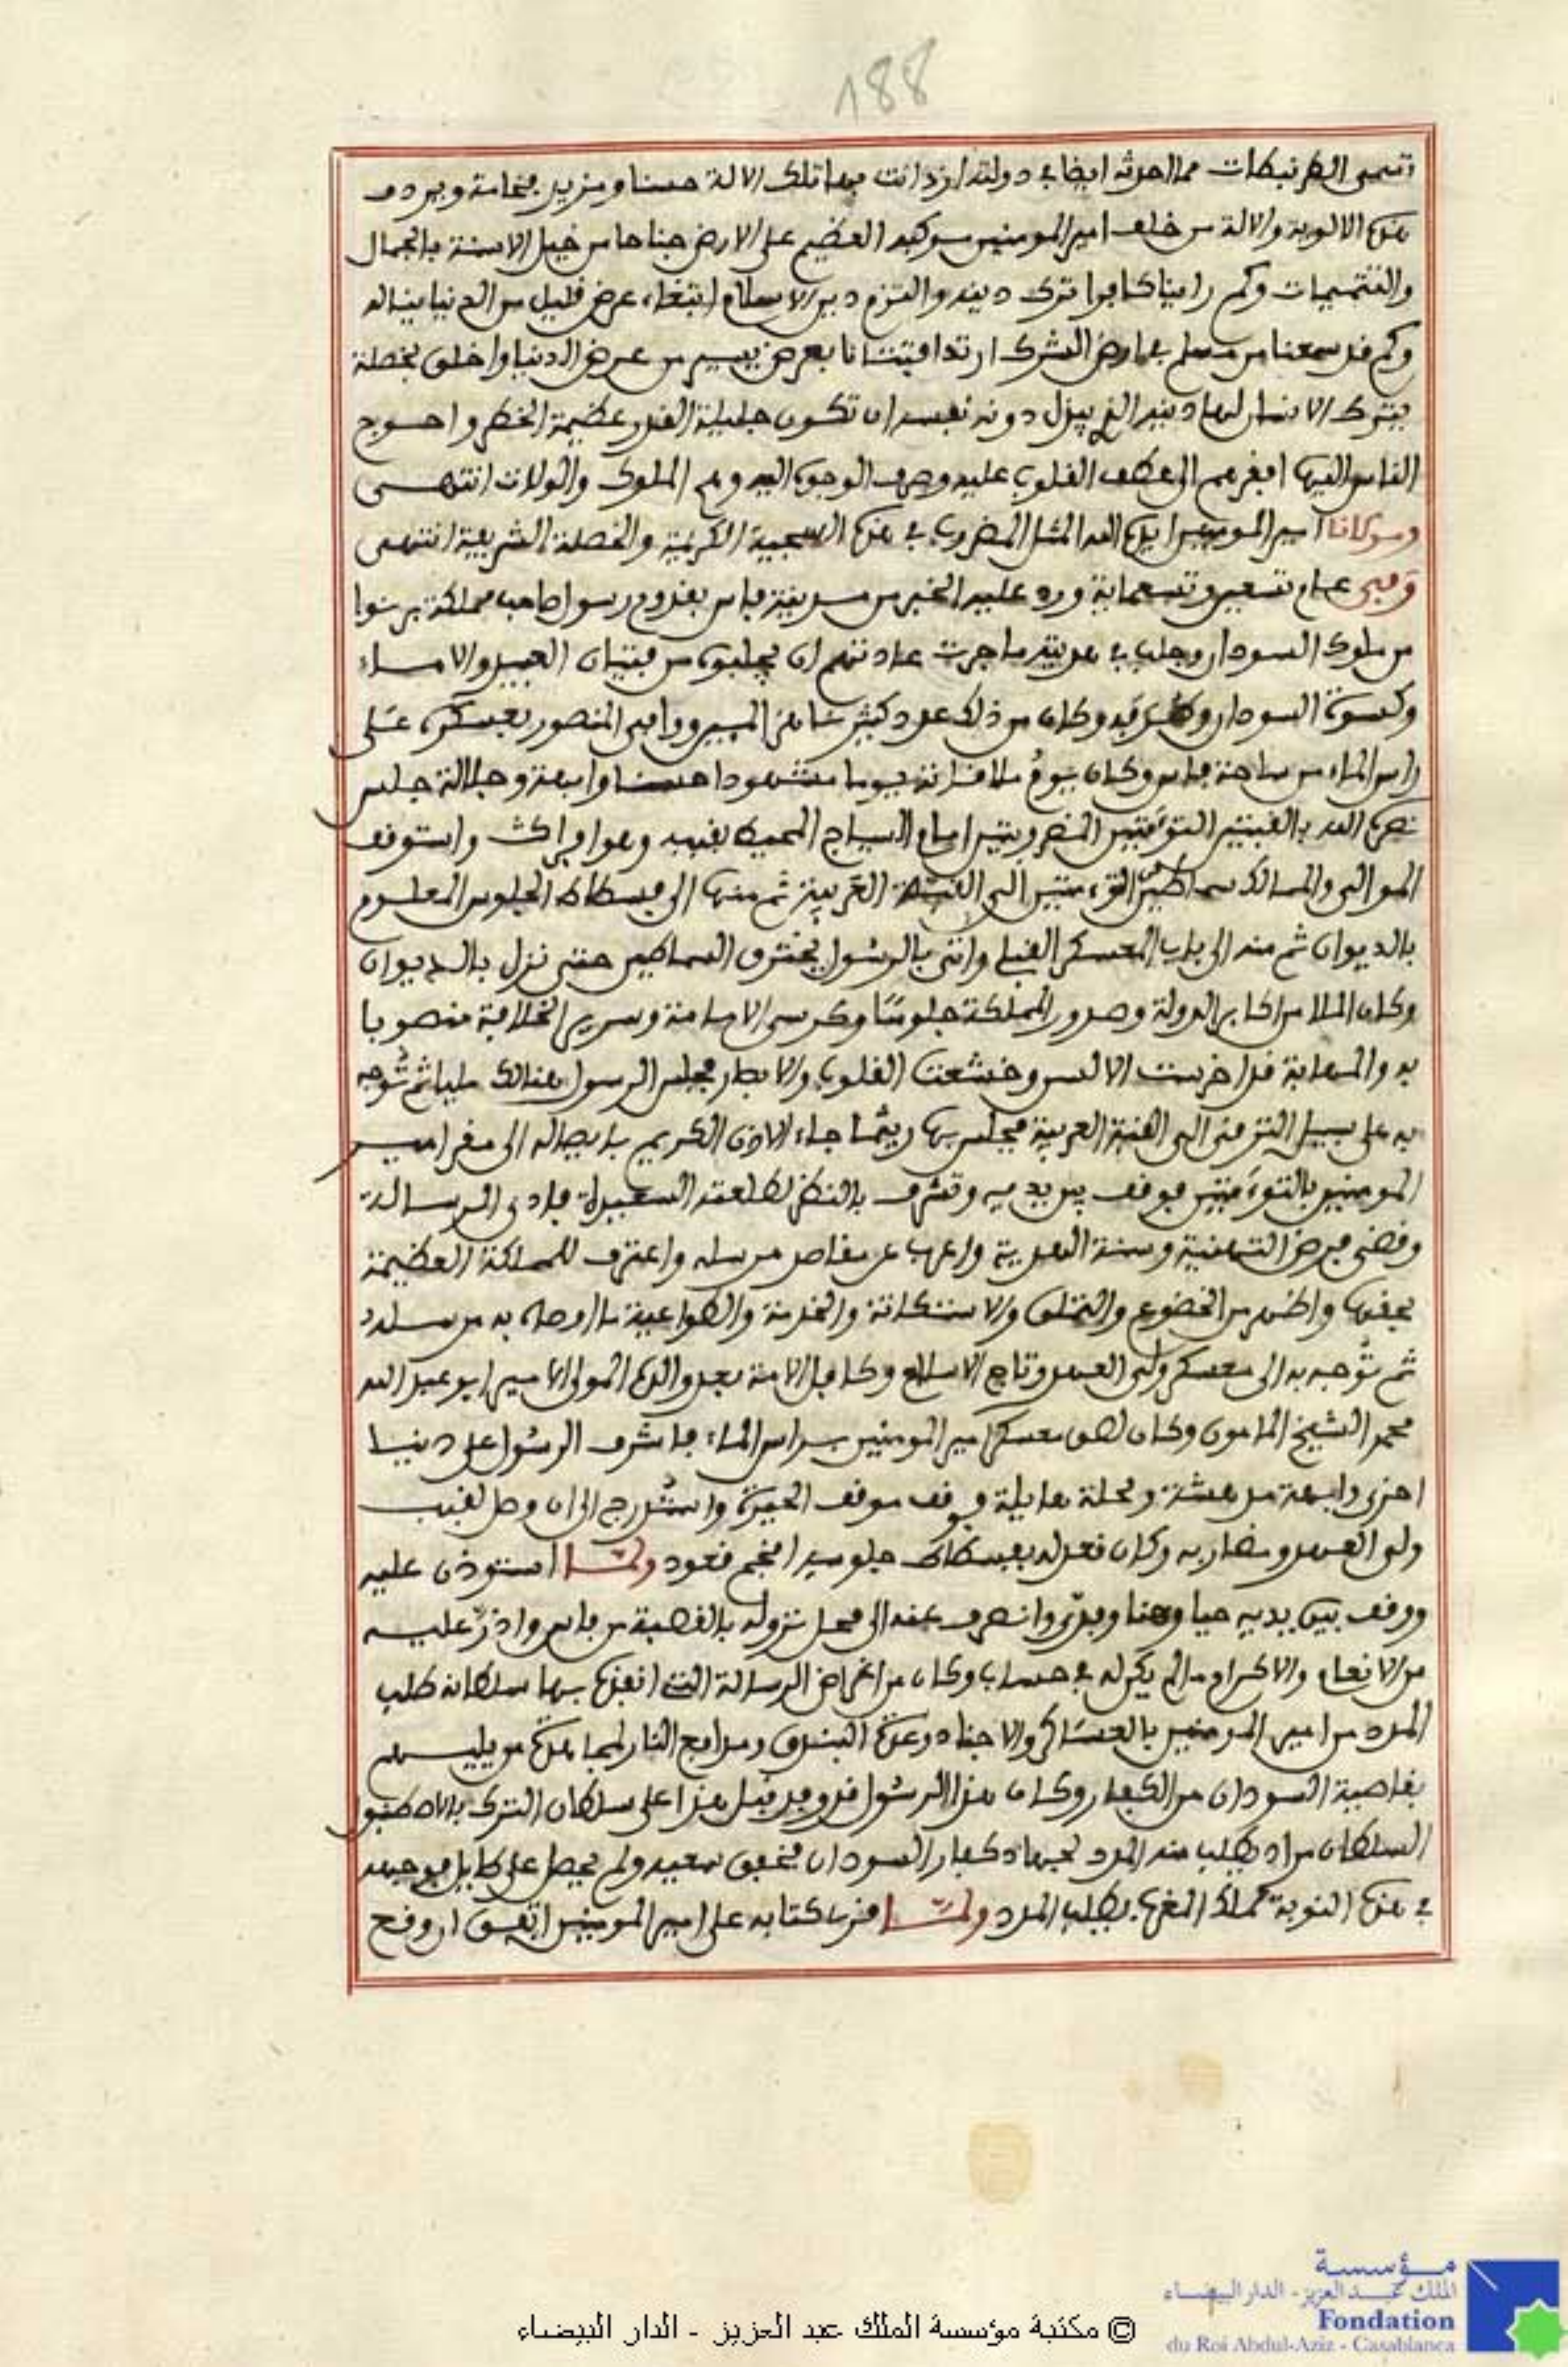 188
تسمى الطرنبطات مما احدثه ايضا في دولته ازدانت بها تلك الالة حسنا ومزيد فخامة ويردف
هذه الالوية والالة من خلف امير المومنين موكبه العظيم على الارض جناحا من خيل الاسنة بالجمال
والتتميمات وكم راينا كافرا ترك دينه والتزم دين الاسلام ابتغاء عرض قليل من الدنيا يناله
وكم قد سمعنا من مسلم بارض الشرك ارتد افتتانا بعرض يسير من عرض الدنيا واخلق بخصلة
يترك الانسان لها دينه الذي يبذل دونه نفسه ان تكون جليلة القدر عظيمة الخطر واحوج
الناس اليها افقرهم الى عطف القلوب عليه وصرف الوجوه اليه وهم الملوك والولات انتهى
ومولانا امير المومنين ايده الله المثل المضروب في هذه السجية الكريمة والخصلة الشريفة انتهى
وفي عام تسعين وتسعماية ورد عليه الخبر من مدينة فاس بقدوم رسول صاحب مملكة برنوا
من ملوك السودان وجلب في هديته ما جرت عادتهم ان يجلبوه من فتيان العبيد والاماء
وكسوة السودان وطرفه وكان من ذلك عدد كثير شاهز الميين ووافى المنصور بعسكره على
راس الماء من ساحة فاس وكان يوم ملاقاته يوما مشهودا حسنا وابهة وجلالة جلس
نصره الله بالقبتين التوءمتين المضروبتين امام السياج المحيط بقببه وهو افراك واستوقف
الموالي والمسالك سماطين من التوءمتين الى القبة الغربية ثم منها الى فسطاط الجلوس المعلوم
بالديوان ثم منه الى باب المعسكر القبلي واتى بالرسول يخترق السماطين حتى نزل بالديوان
وكان الملا من اكابر الدولة وصدور المملكة جلوسا وكرسي الامامة وسرير الخلافة منصوبا
به والمهابة قد اخرست الالسن وخشعت القلوب والابصار فجلس الرسول هنالك مليا ثم توجه
به على سبيل الترقي الى القبة الغربية فجلس بها ريثما جاء الاذن الكريم بايصاله الى مقر امير
المومنين بالتوءمتين فوقف بين يديه وتشرف بالنظر لطلعته السعيدة فادى الرسالة
وقضى فرض التهنية وسنة الهدية واعرب عن مقاصد مرسله واعترف للمملكة العظيمة
بحقها واظهر من الخضوع والتملق والاستكانة والخدمة والطواعية ما اوصاه به مرسله
ثم توجه به الى معسكر ولي العهد وتاج الاسلام وكافل الامة بعد والده المولى الامير ابو عبد الله
محمد الشيخ المامون وكان لصق معسكر امير المومنين براس الماء فاشرف الرسول على دنيا
اخرى وابهة مدهشة ومحلة هايلة فوقف موقف الحيرة واستدرج الى ان وصل لقبب
ولي العهد ومضاربه وكان قعد له بفسطاط جلوسه افخم قعود ولما استوذن عليه
ووقف بين يديه حيا وهنا وفدى وانصرف عنه الى محل نزوله بالقصبة من فاس وادر عليه
من الانعام والاكرام ما لم يكن له في حساب وكان من اغراض الرسالة التي انفذه بها سلطانه طلب
المدد من امير المومنين بالعساكر والاجناد وعدة البندق ومدافع النار لمجاهدة من يليهم
بقاصية السودان من الكفار وكان هذا الرسول قد وفد قبل هذا على سلطان الترك بالاصطنبول
السلطان مراد يطلب منه المدد لجهاد كفار السودان فخفق سعيه ولم يحصل على طايل فوجهه
في هذه النوبة لملك المغرب يطلب المدد ولما قرب كتابه على امير المومنين اتفق ان وقع
© مكتبة مؤسسة الملك عبد العزيز - الدار البيضاء
مؤسسة
الملك عبد العزيز - الدار البيضاء
Fondation
du Roi Abdul-Aziz - Casablanca